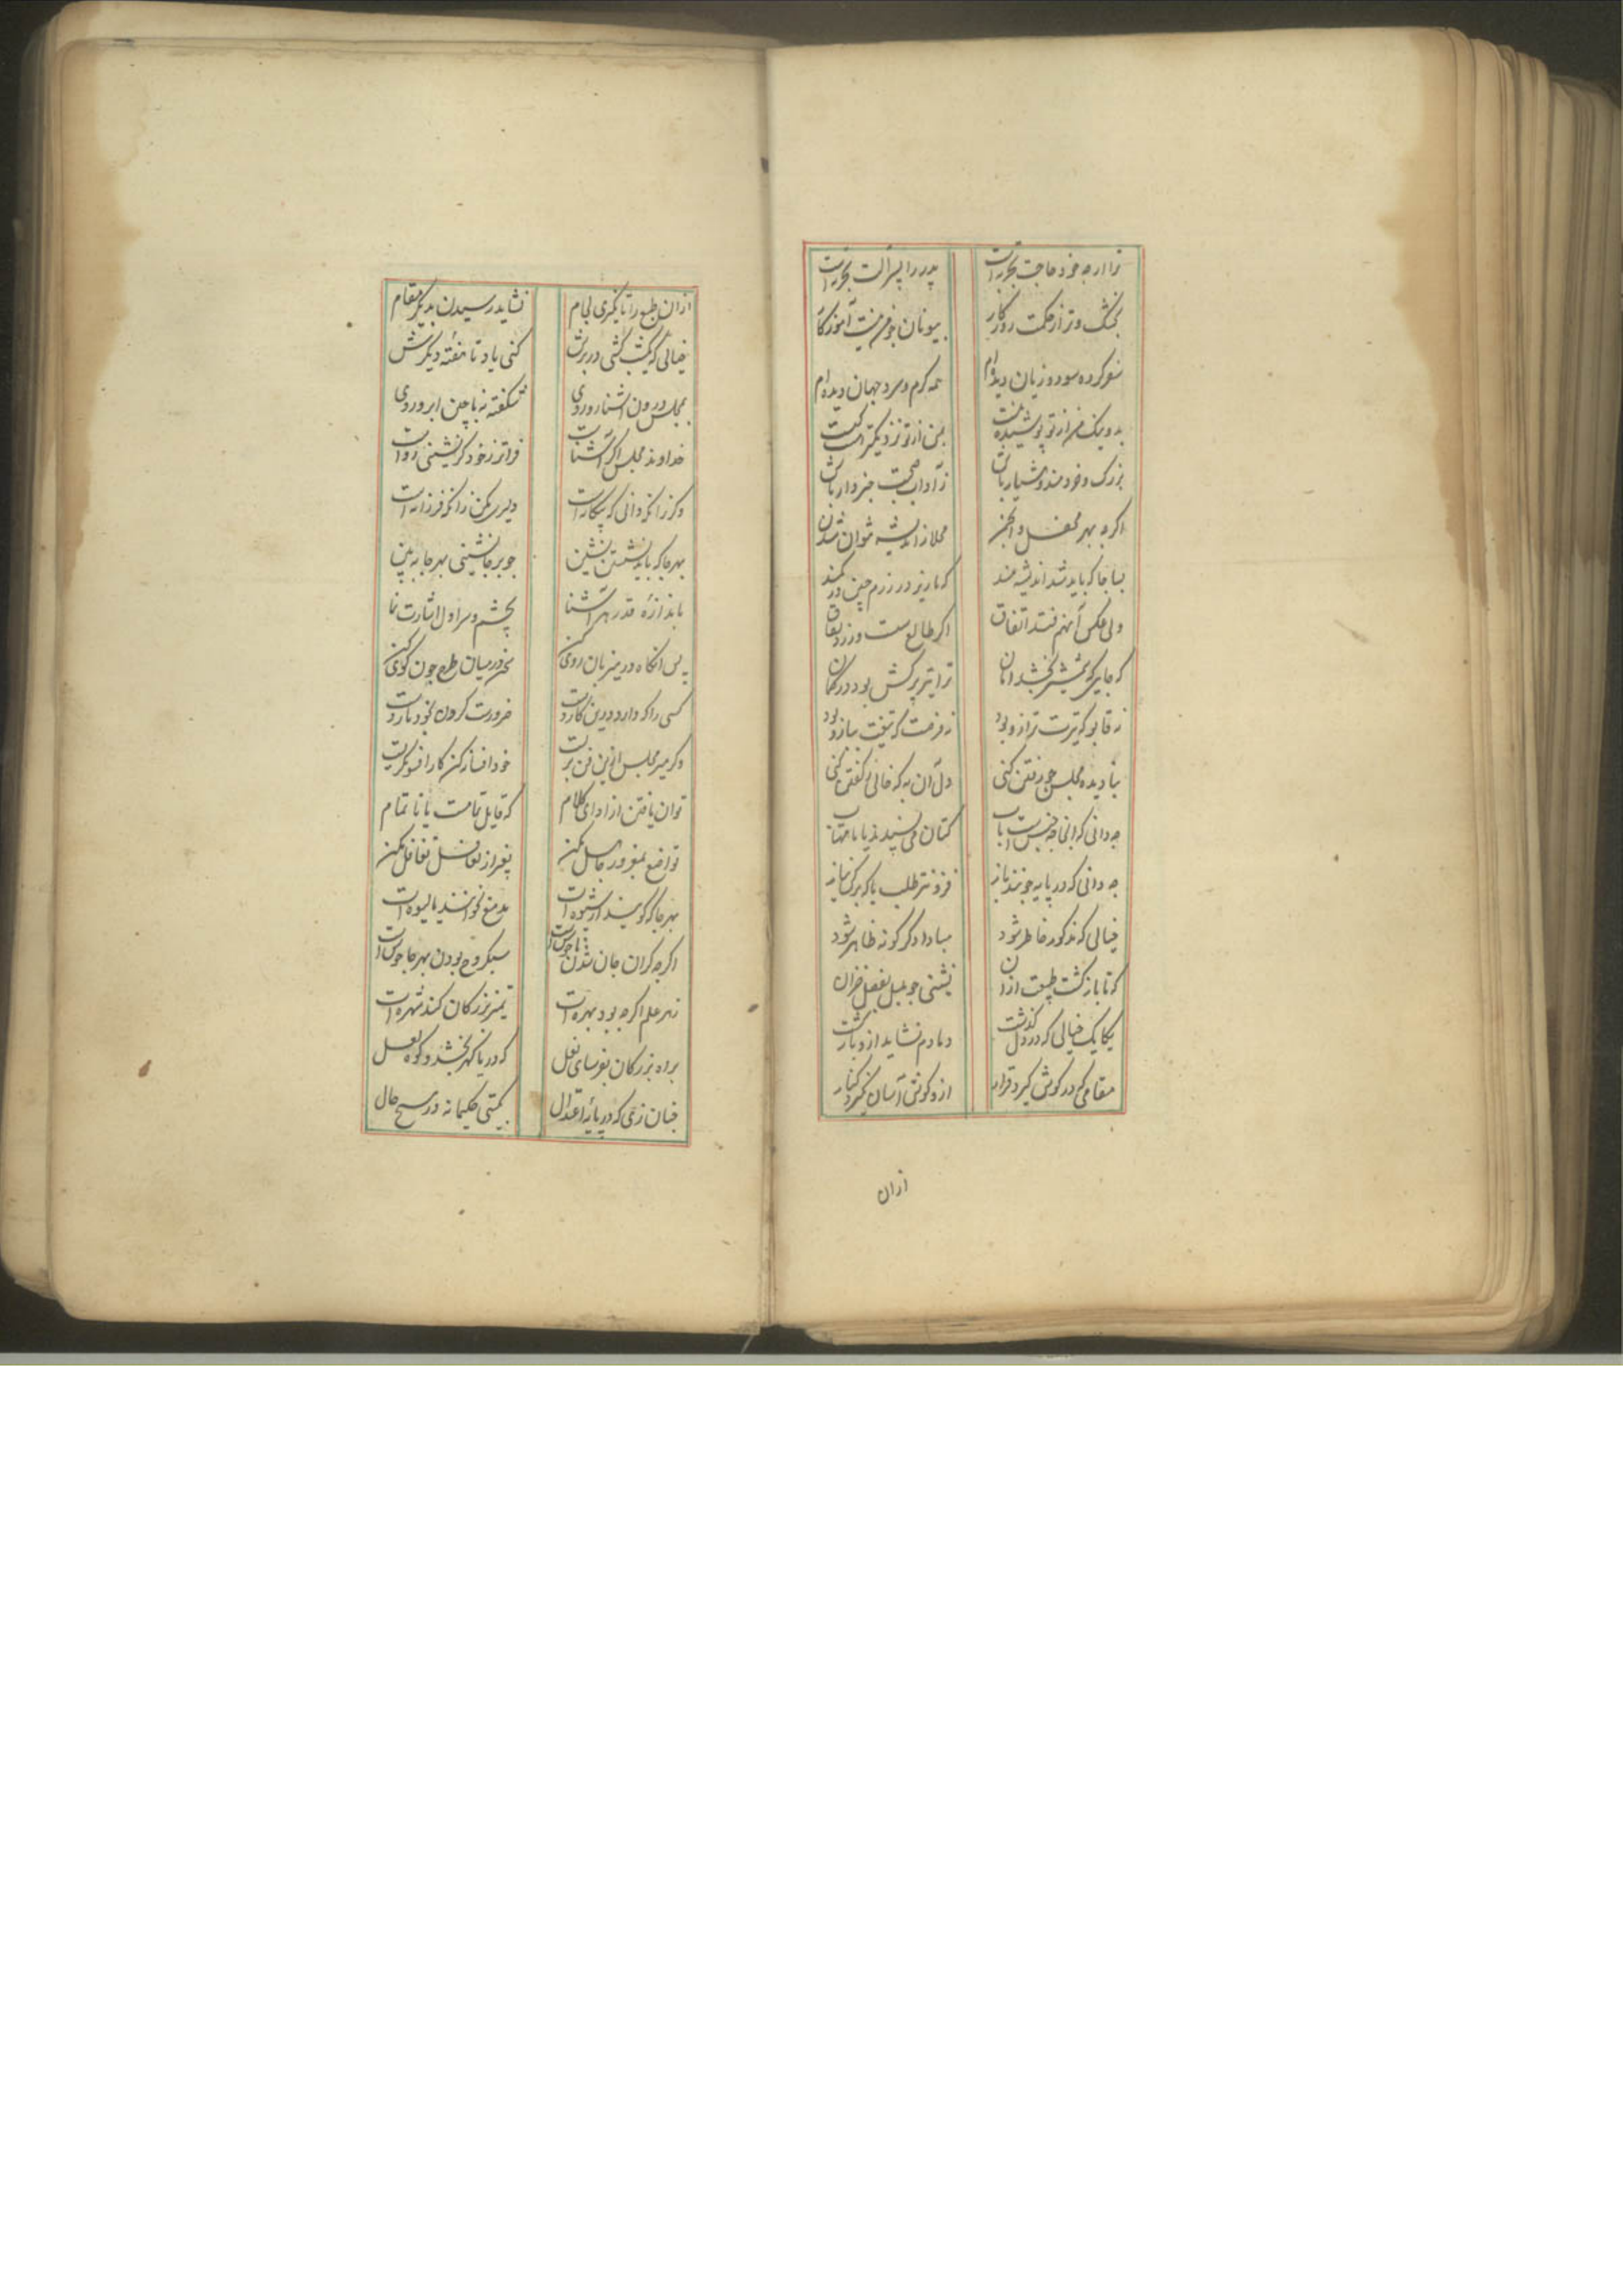 ترا ارچه خود حاجت تجربه است پدر را پسر آلت تجربه است
بخشک و تر از حکمت روزگار بیونان چو من نیست آموزگار
سفر کرده سود و زیان دیده‌ام همه گرم و سرد جهان دیده‌ام
بد و نیک من از تو پوشیده نیست بمن از تو نزدیکتر است کیست
بزرگ و خردمند و هشیار باش ز آداب صحبت خبردار باش
اگرچه بهر محفل و انجمن
بسا جا که باید شد اندیشه مند که نا ریز در رزم چین در کمند
ولی عکس آنهم فتد اتفاق اگر طالع سست ورزد نفاق
که جایی که شمشیر بخشد امان ترا تیر ترکش بود در کمان
نه قابو که تیرت ترازو بود نه فرصت که تیغت ببازو بود
بنادیده مجلس چو رفتن کنی دل آن به که خالی ز گفتن کنی
چه دانی که آنجا چه جنس است باب کتان می‌پسندند یا ماهتاب
چه دانی که در پایه جویند مایه فزونتر طلب یا که برگ
خیالی که مذکور خاطر شود مبادا دگرگونه ظاهر شود
که تا باز گشت طبیعت ازان نشینی چو بلبل بفصل خزان
یکایک خیالی که در دل گذشت دمادم نشاید ازو باز گشت
مقامی که در گوش گیرد قرار ازو گوش آسان نگیرد کنار
ازان
ازان طبع را تا نگیری لجام نشاید رسیدن بدیگر مقام
خیالی که یکشب کشی در برش کنی یاد تا هفتهٔ دیگرش
بمجلس درون آشنا رو دروی شکفته نه با چین ابرو دروی
خداوند مجلس اگر آشناست فراتر ز خود گر نشینی رواست
وگر زانکه دانی که بیگانه است دلیری مکن زانکه فرزانه است
بهر جا که باید نشستن نشین چو بر جا نشینی بهر جا ببین
باندازهٔ قدر هر آشنا بچشم و سر اول اشارت نما
پس آنگاه در میزبان روی کن سخن در میان طرح چون گوی کن
کسی را که دارد درین کار دست ضرورت کزون بخود یار دست
وگر میر مجلس ازین فن بریست خود افسانه کن کار افسونگریست
توان یافتن از ادای کلام که قایل تمامست یا ناتمام
تواضع بمغرور جاهل مکن بغیر از تغافل تغافل مکن
بهر جا که گویند ازشیوه است مدمغ نخوانند یا لیوه است
اگرچه گران جان شدن ناخوش است سبکروح بودن بهر جا خوش است
زهر علم اگرچه بود بهره است تمیز بزرگان کند شهره است
براه بزرگان بفرسای نعل که دریا گهر بخشد و کوه لعل
چنان زی که در پایهٔ اعتدال بگیتی حکیمانه در سیح حال